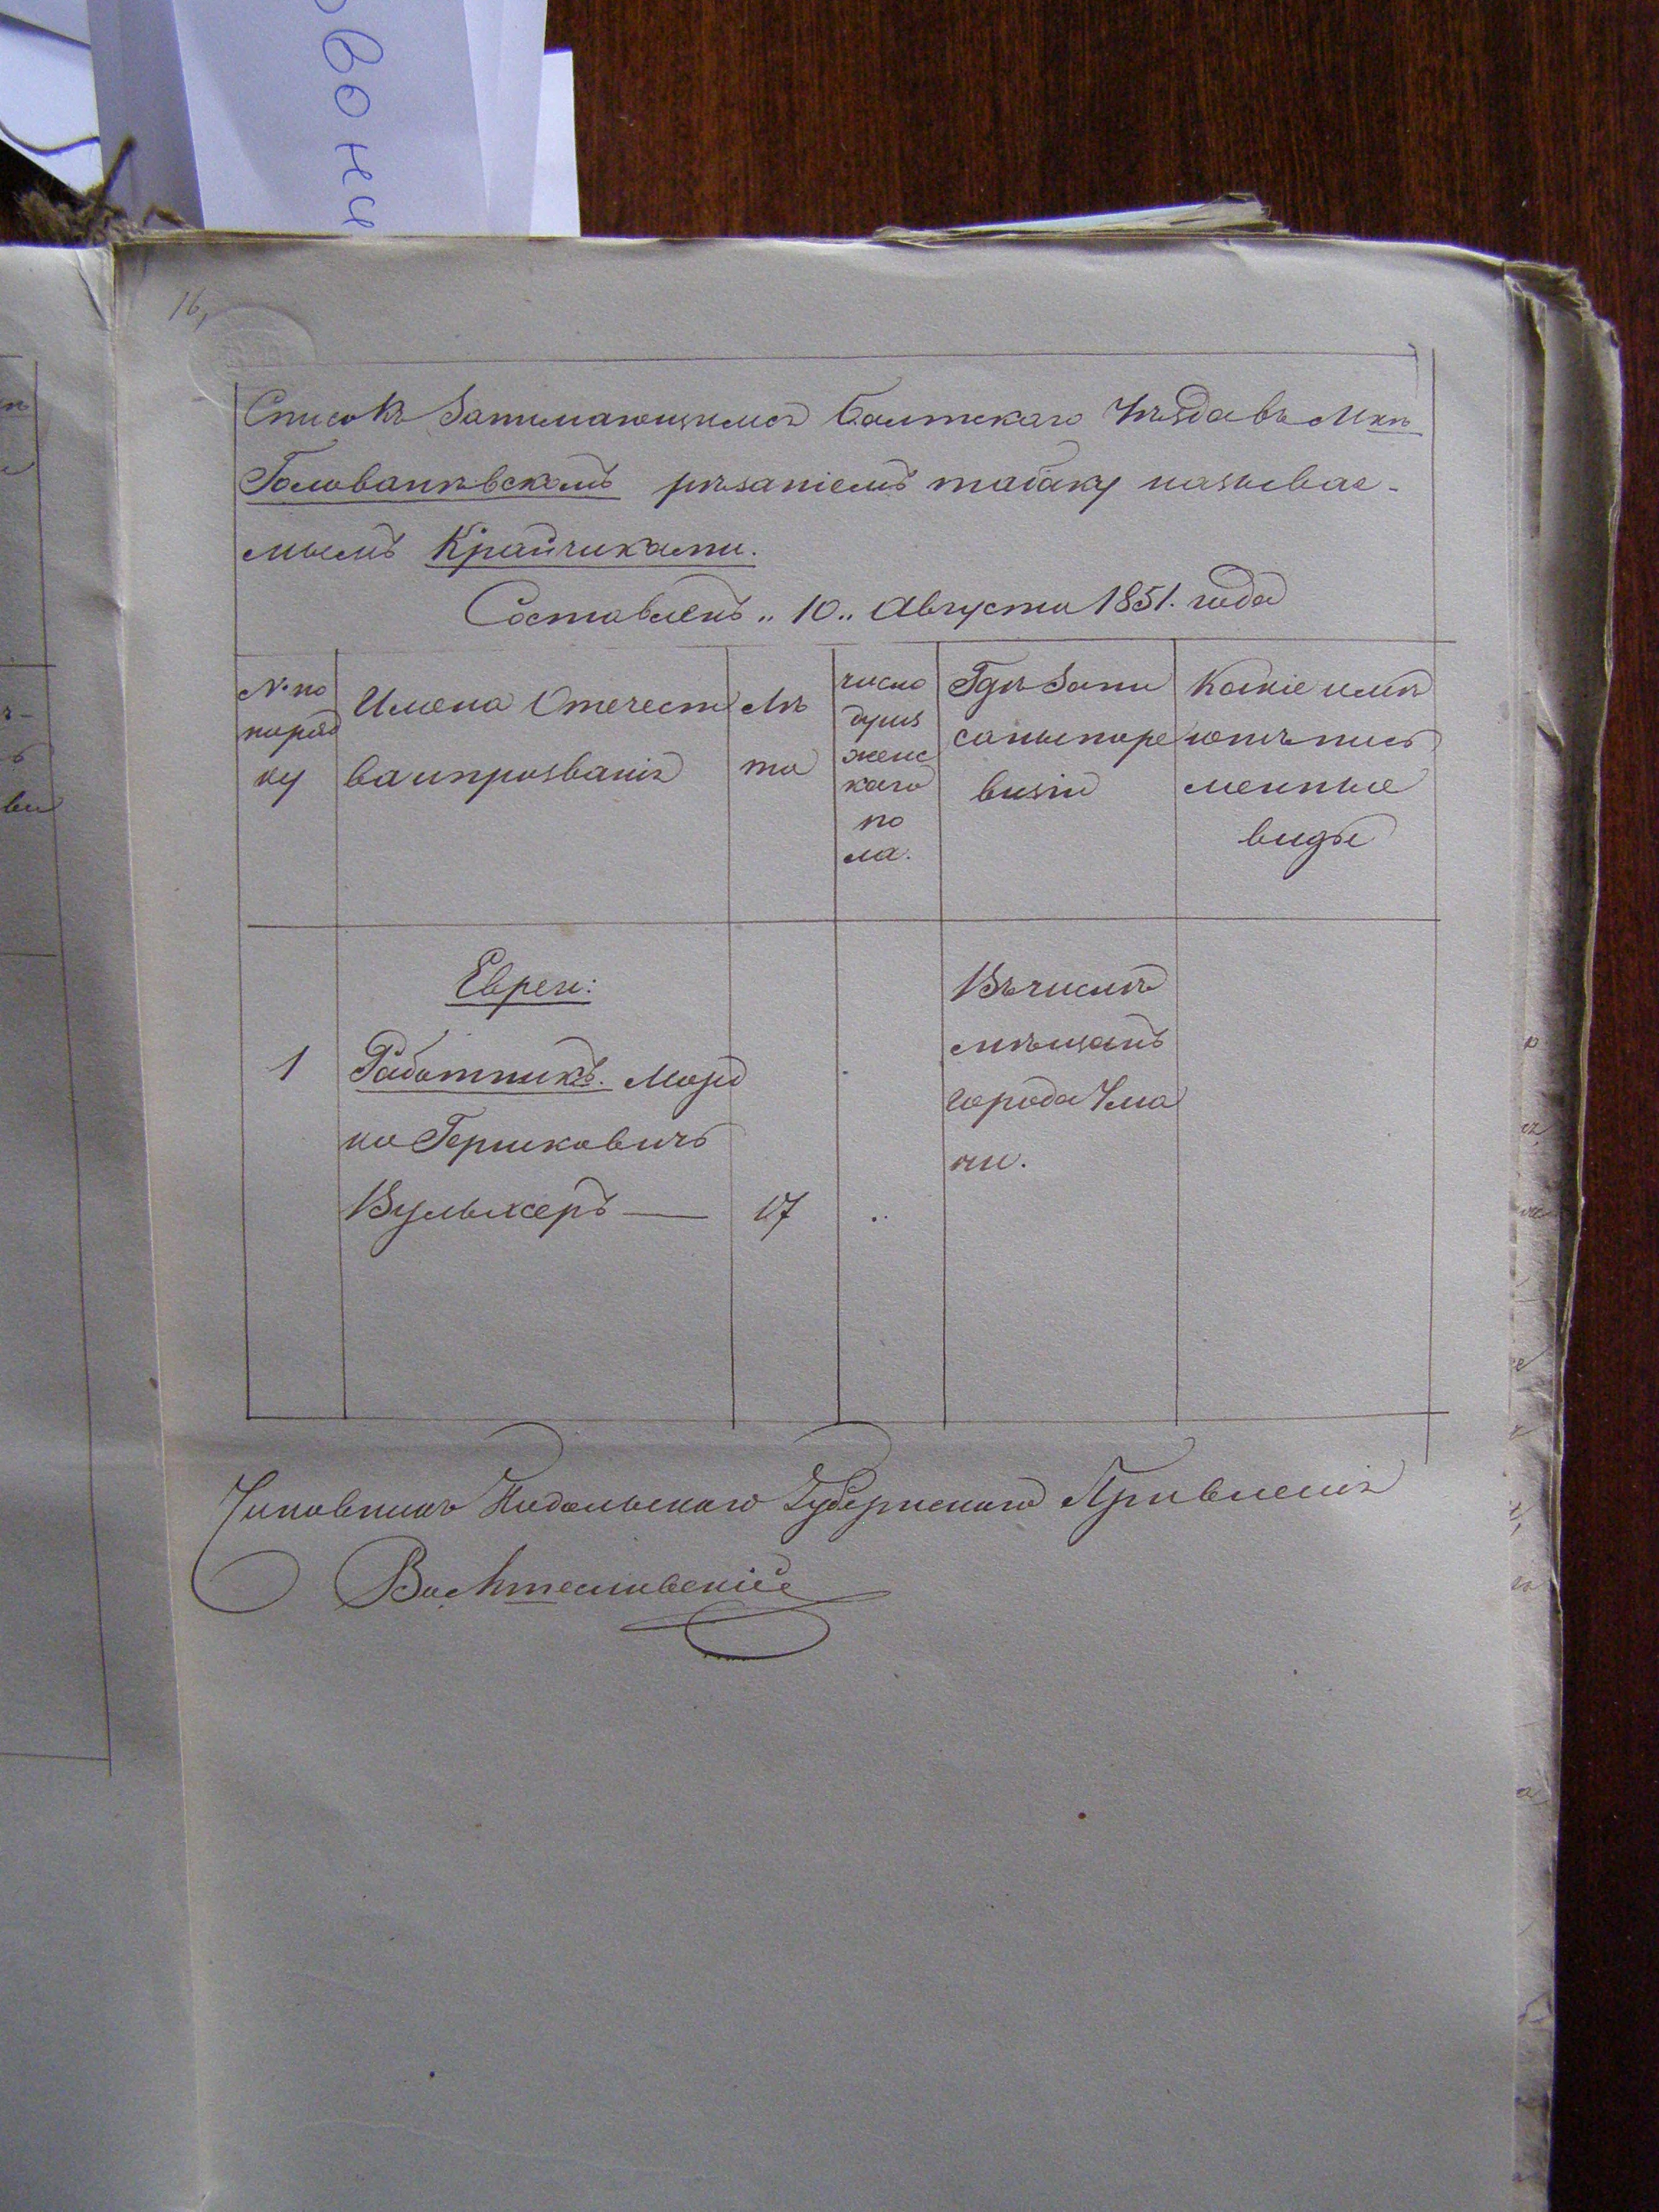 вони
16,
Списокъ Занимающимся Балтскаго Уѣзда въ М-кѣ
Голованѣвскомъ рѣзаніемъ табаку называе-
мымъ Крайчиками.
Составленъ „ 10 „ Августа 1851. года
№ по
поряд
ку
Имена Отечест
ва и прозванія
Лѣ
та
число
душъ
женс
каго
по
ла.
Гдѣ Запи
саны по ре
визіи
Какіе имѣ
ютъ пись
менные
виды
Евреи:
1 Работникъ. Мор
ко Гершковичъ
Вульхеръ — 17 „
Въ числѣ
мѣщанъ
города Ума
ни.
Чиновникъ Подольскаго Губернскаго Правленія